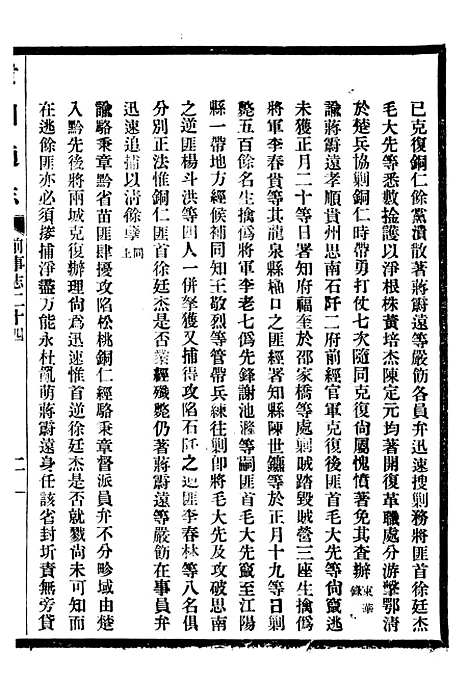 已克復銅仁餘黨潰散著蔣霨遠等嚴飭各員弁迅速搜剿務將匪首徐廷杰
毛大先等悉數擒獲以淨根株黃培杰陳定元均著開復革職處分游擊鄂清
於楚兵協剿銅仁時帶勇打仗七次隨同克復尚屬愧憤著免其查辦東華錄
諭蔣霨遠孝順貴州思南石阡二府前經官軍克復後匪首毛大先等尙竄
未獲正月二十等日署知府福奎於邵家橋等處剿賊踏毀賊營三座生擒僞
將軍李春貴等其龍泉縣偏口之匪經署知縣陳世鑣等於正月十九等日剿
斃五百餘名生擒僞將軍李老七僞先鋒謝池滌等嗣匪首毛大先竄至江陽
縣一帶地方經候補同知王敬烈等管帶兵練往剿卽將毛大先及攻破思南
之逆匪楊斗洪等四人一併拏獲又捕得攻陷石阡之逆匪李春林等八名俱
分別正法惟銅仁匪首徐廷杰是否業經殲斃仍著蔣霨遠嚴飭在事員弁
迅速追捕以清餘孽同上
諭駱秉章黔省苗匪肆擾攻陷松桃銅仁經駱秉章督派員弁不分畛域由楚
入黔先後將兩城克復辦理尙爲迅速惟首逆徐廷杰是否就戮尙未可知而
在逃餘匪亦必須搜捕淨盡方能永杜亂萌蔣霨遠身任該省封圻責無旁貸
前事志二十四